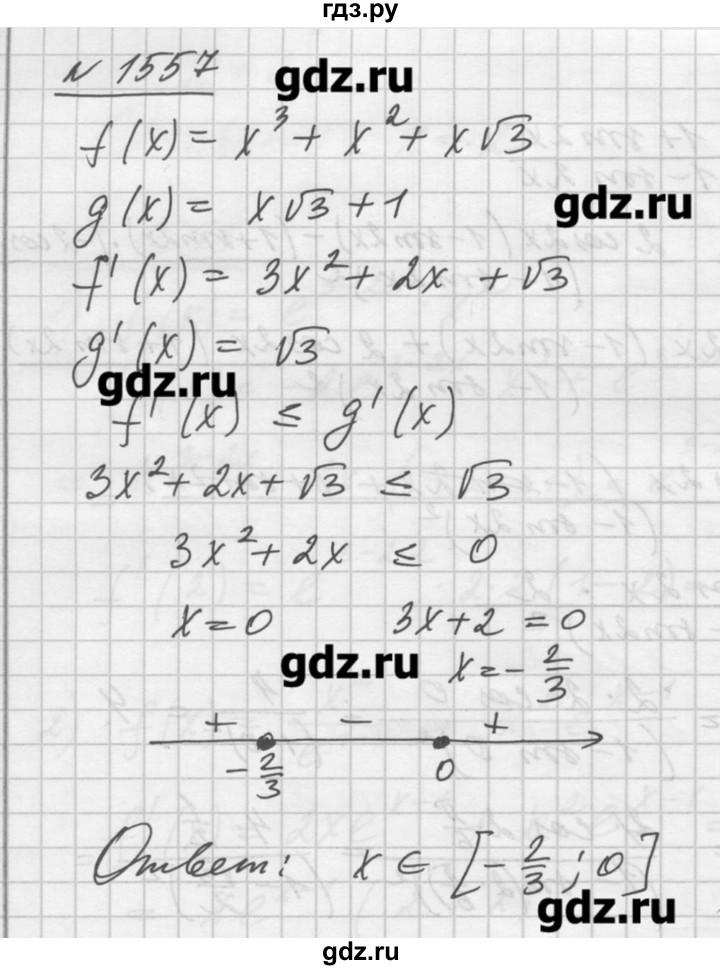 гдз.ру
N 1557
gdz.ru
f(x) = x³ + x² + x√3
g(x) = x√3 + 1
gdz.ru
f'(x) = 3x² + 2x + √3
g'(x) = √3
gdz.ru
f'(x) ≤ g'(x)
3x² + 2x + √3 ≤ √3
3x² + 2x ≤ 0
x = 0 3x + 2 = 0
gdz.ru x = - 2/3
+ - +
- 2/3 0
Ответ: x ∈ [- 2/3 ; 0]
gdz.ru
gdz.ru